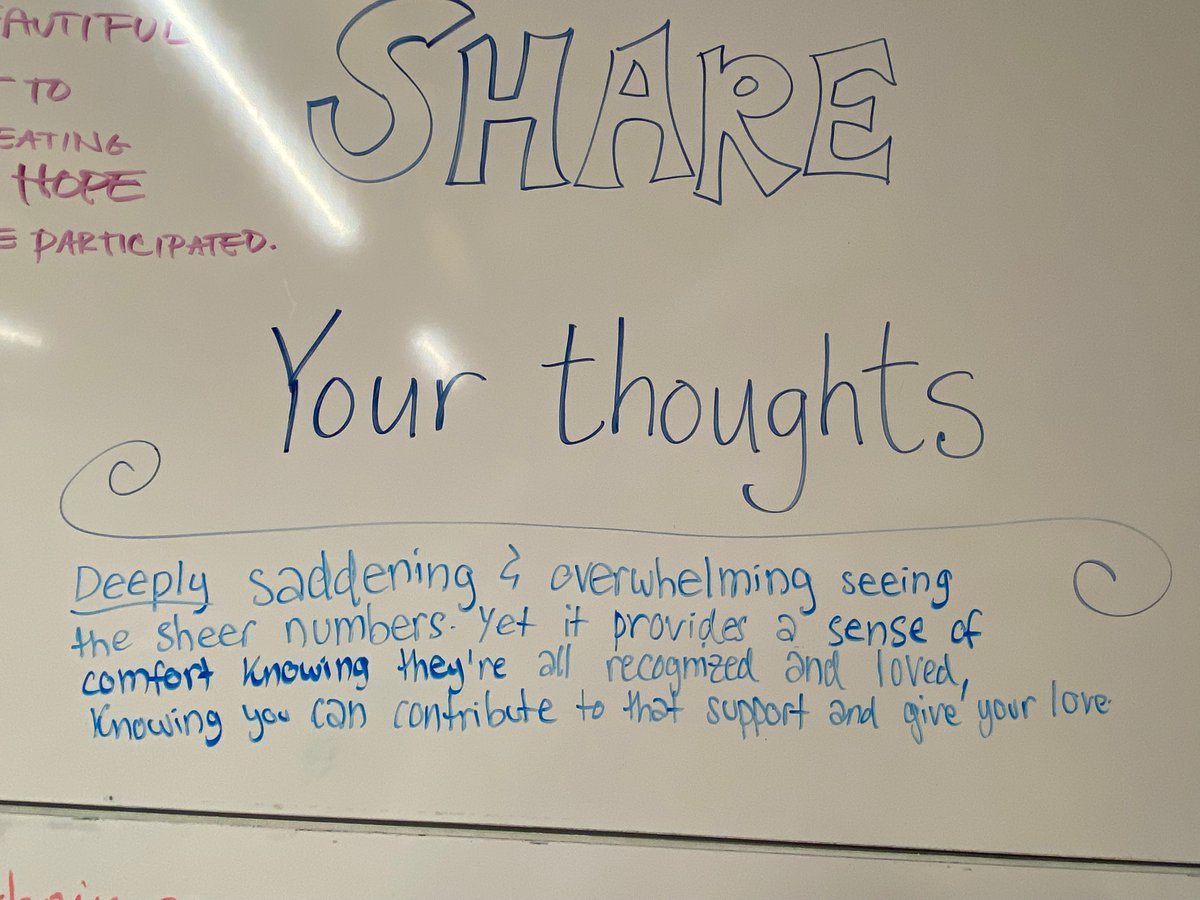 EAUTIFUL
TO
EATING
HOPE
E PARTICIPATED.
SHARE
Your thoughts
Deeply saddening & overwhelming seeing
the sheer numbers. Yet it provides a sense of
comfort knowing they're all recognized and loved,
Knowing you can contribute to that support and give your love.